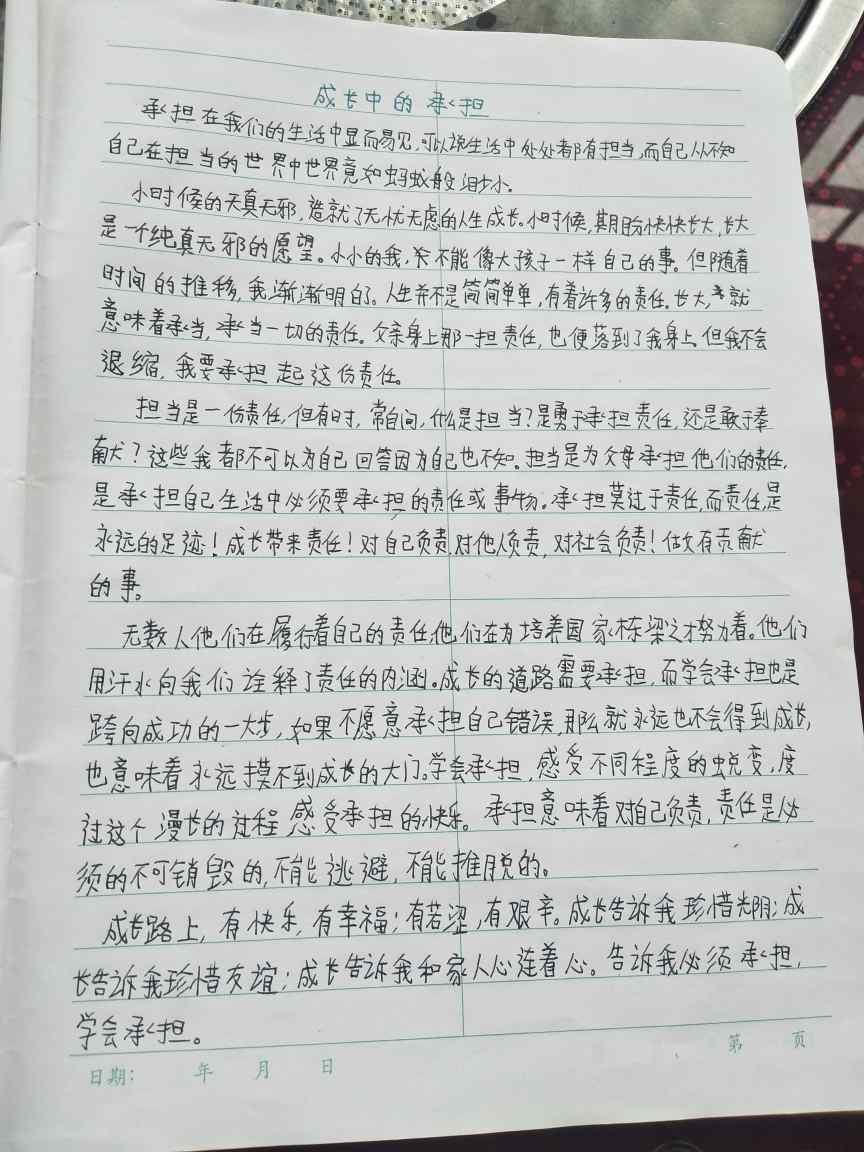 成长中的承担
承担在我们的生活中显而易见,可以说生活中处处都有担当,而自己从不知
自己在担当的世界中世界竟如蚂蚁般渺小。
小时候的天真无邪,造就了无忧无虑的人生成长。小时候,期盼快快长大,长大
是一个纯真无邪的愿望。小小的我,不能像大孩子一样自己的事。但随着
时间的推移,我渐渐明白了。人生并不是简简单单,有着许多的责任。长大,就
意味着承当,承当一切的责任。父亲身上那一担责任,也便落到了我身上。但我不会
退缩,我要承担起这份责任。
担当是一份责任,但有时,常自问,什么是担当?是勇于承担责任,还是敢于奉
献?这些我都不可以为自己回答因为自己也不知。担当是为父母承担他们的责任,
是承担自己生活中必须要承担的责任或事物。承担莫过于责任,而责任,是
永远的足迹!成长带来责任!对自己负责,对他人负责,对社会负责!做有贡献
的事。
无数人他们在履行着自己的责任,他们在为培养国家栋梁之才努力着。他们
用汗水向我们诠释了责任的内涵。成长的道路需要承担,而学会承担也是
跨向成功的一大步,如果不愿意承担自己错误,那么就永远也不会得到成长,
也意味着永远摸不到成长的大门。学会承担,感受不同程度的蜕变,度
过这个漫长的过程感受承担的快乐。承担意味着对自己负责,责任是必
须的不可销毁的,不能逃避,不能推脱的。
成长路上,有快乐,有幸福;有苦涩,有艰辛。成长告诉我珍惜光阴;成
长告诉我珍惜友谊;成长告诉我和家人心连着心。告诉我必须承担,
学会承担。
日期: 年 月 日
第 页